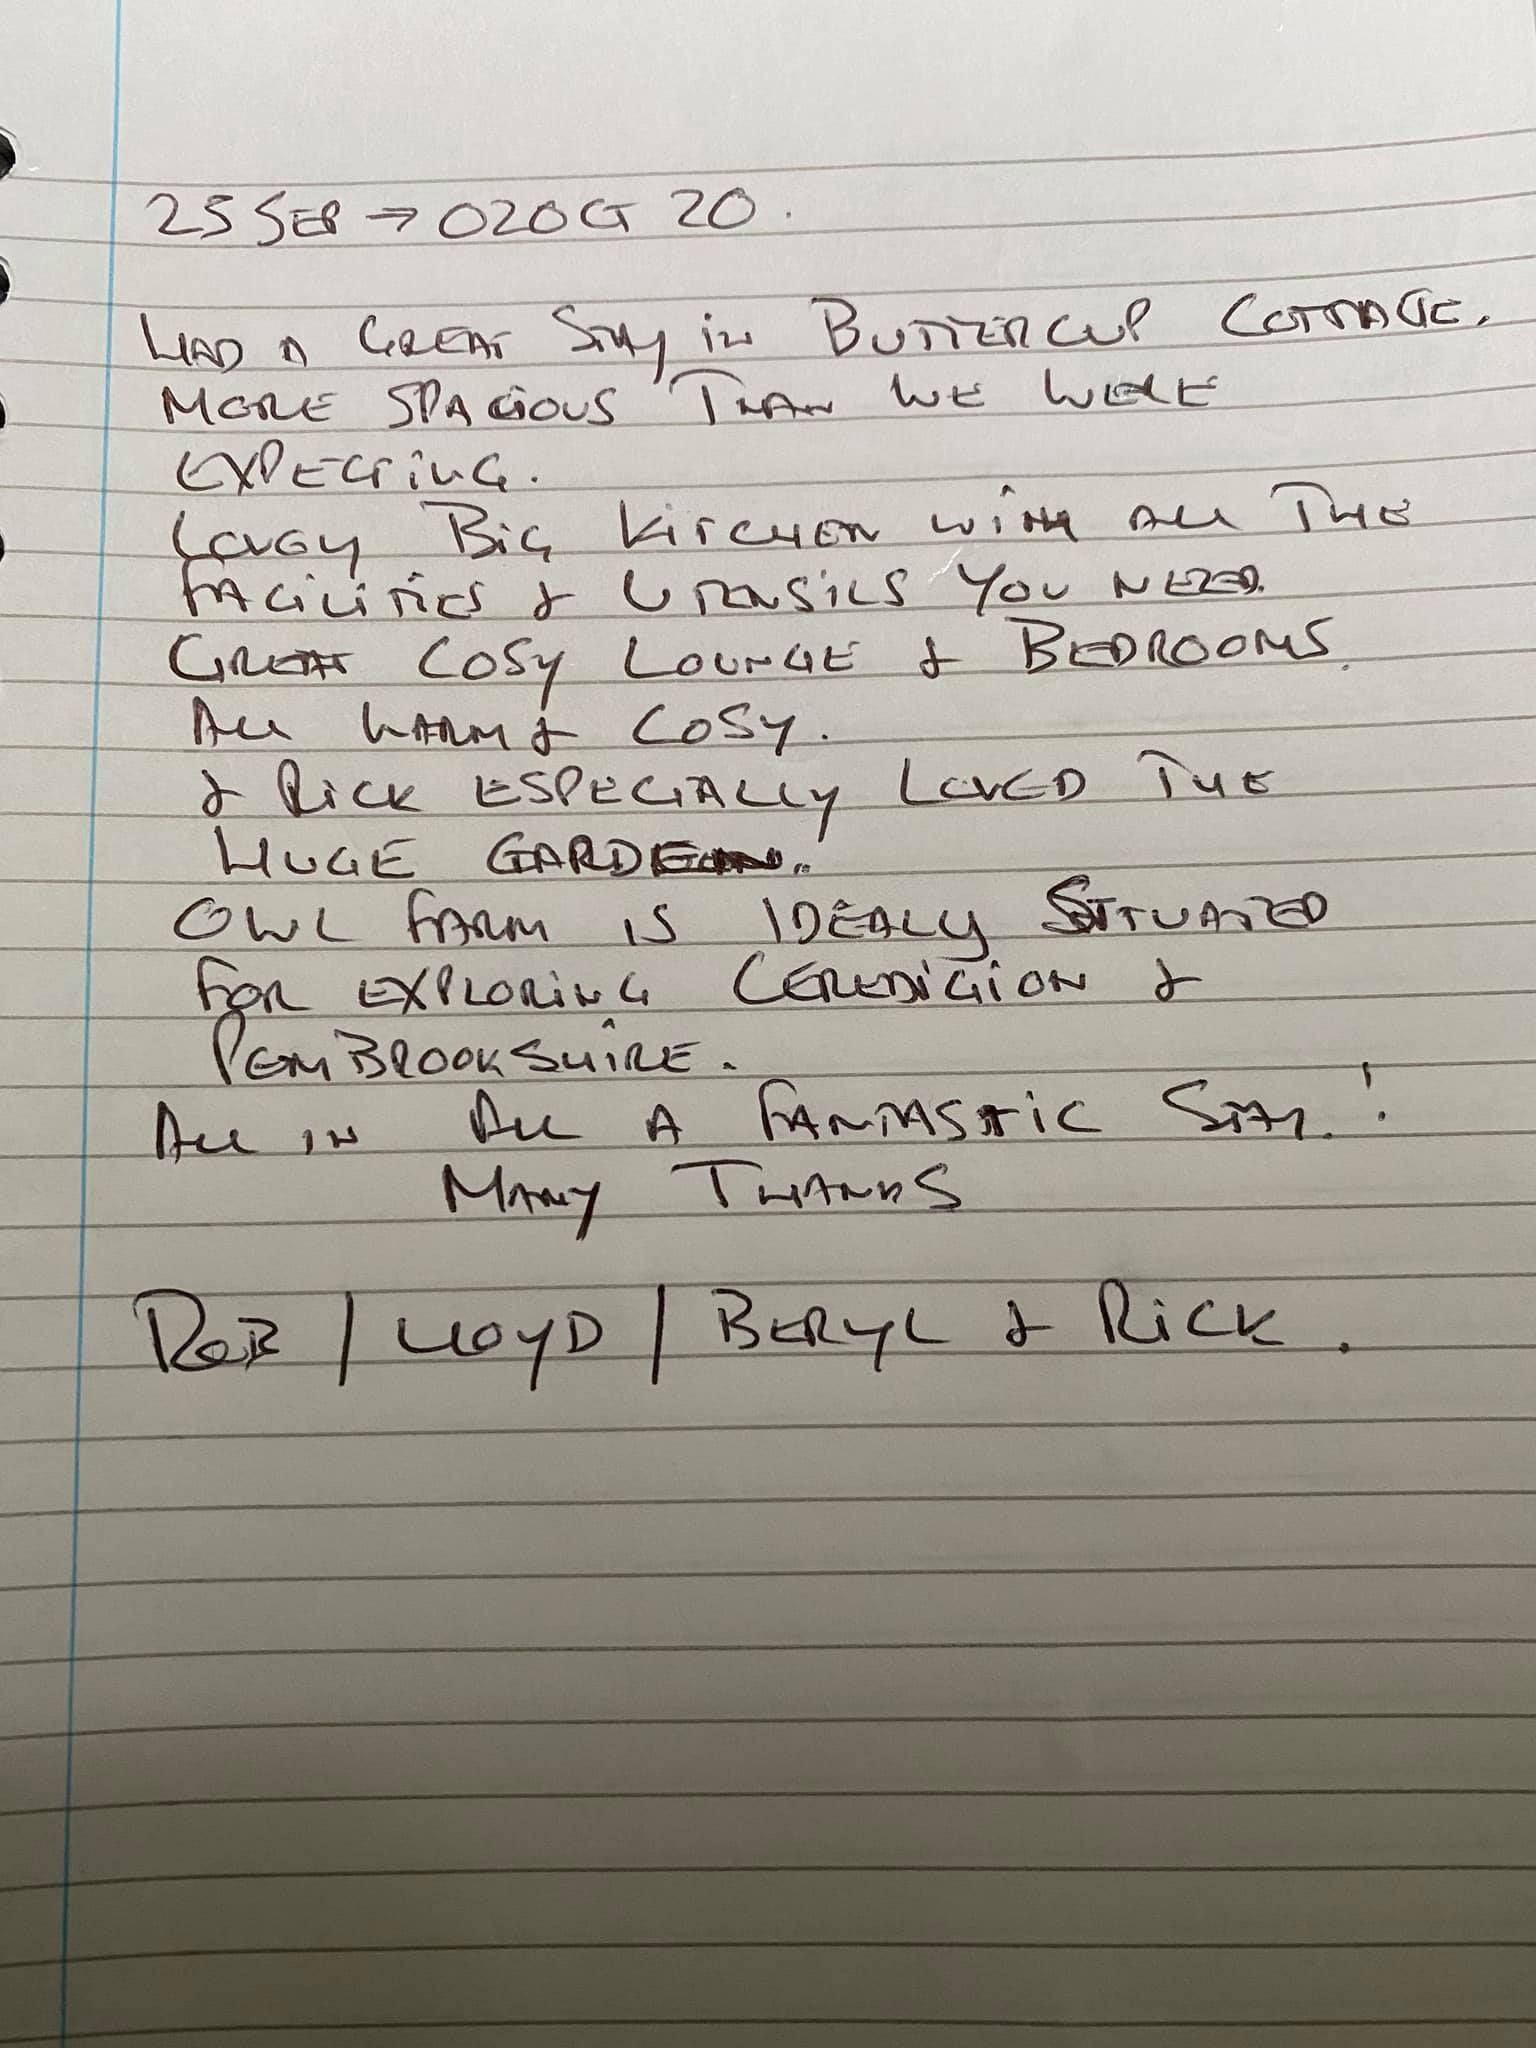 25 SEP → 02 OCT 20.
HAD A GREAT STAY IN BUTTERCUP COTTAGE.
MORE SPACIOUS THAN WE WERE
EXPECTING.
LOVELY BIG KITCHEN WITH ALL THE
FACILITIES & UTENSILS YOU NEED.
GREAT COSY LOUNGE & BEDROOMS.
ALL WARM & COSY.
& RICK ESPECIALLY LOVED THE
HUGE GARDEN..
OWL FARM IS IDEALY SITUATED
FOR EXPLORING CEREDIGION &
PEMBROOKSHIRE.
ALL IN ALL A FANTASTIC STAY.!
MANY THANKS
ROB / LLOYD / BERYL & RICK.